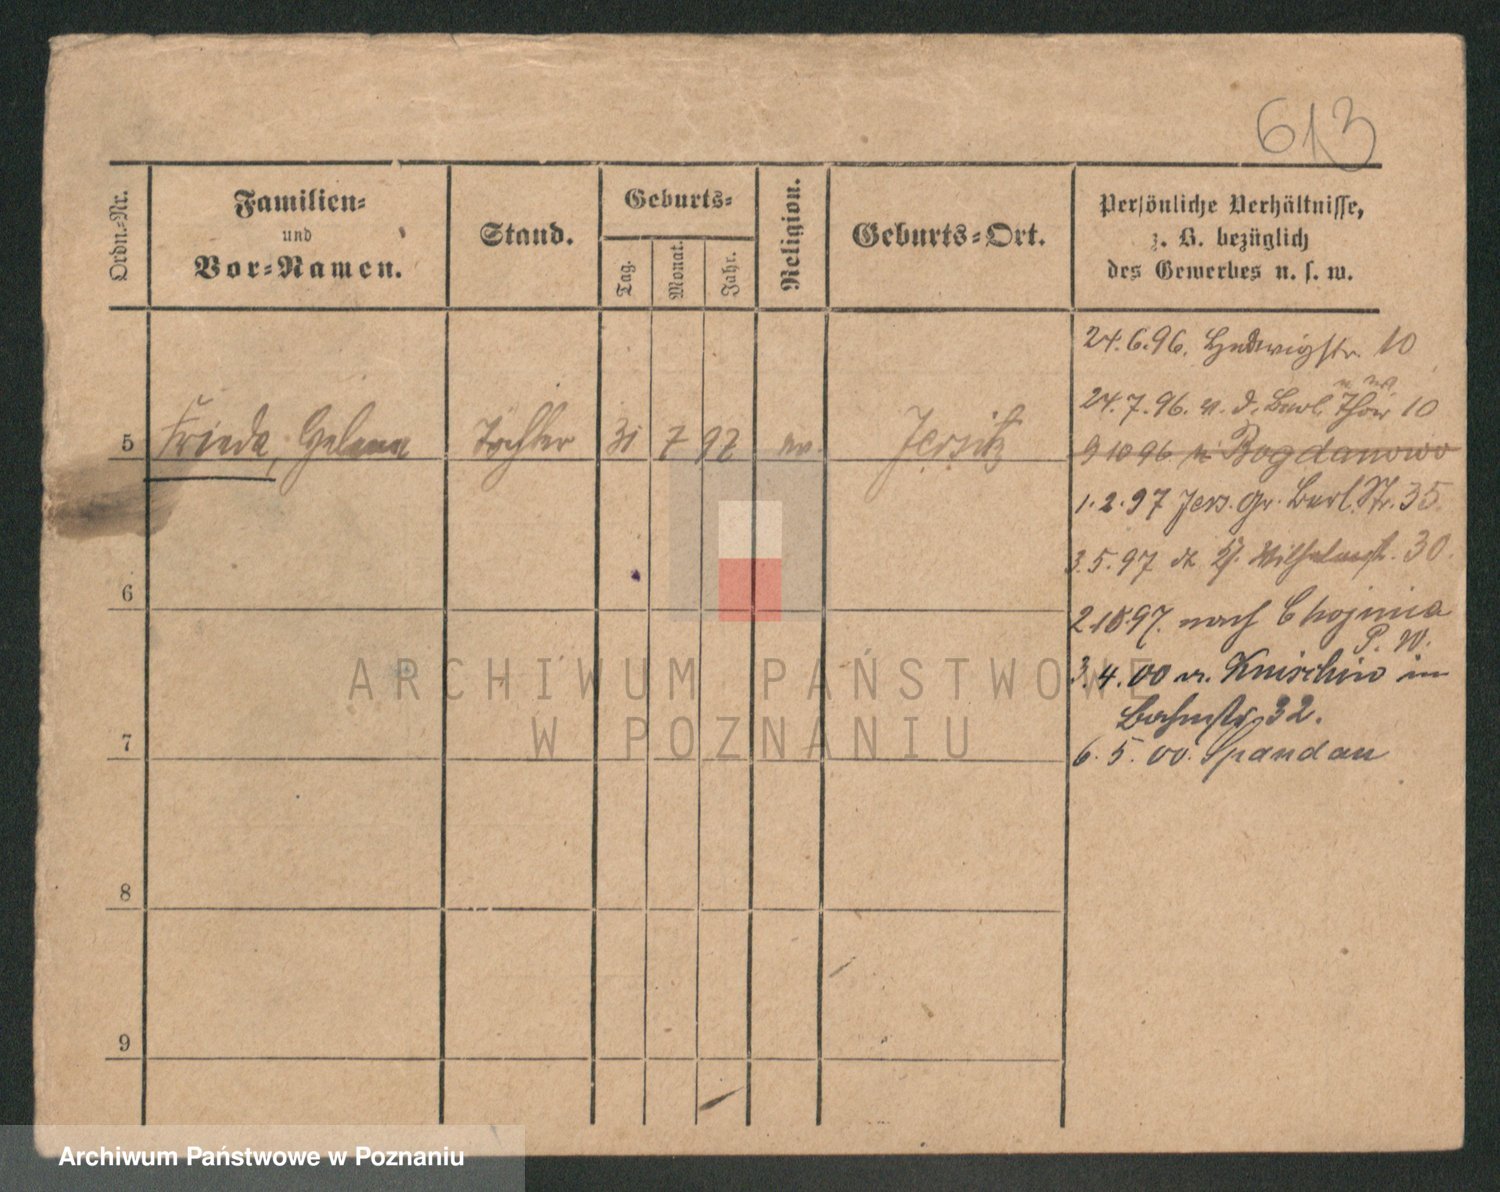 613
Ordn.-Nr.
Familien-
und
Vor-Namen.
Stand.
Geburts-
Tag.
Monat.
Jahr.
Religion.
Geburts-Ort.
Persönliche Verhältnisse,
z. B. bezüglich
des Gewerbes u. s. w.
24.6.96. Hedwigstr. 10
24.7.96. v. d. Berl. Thor 10
5 Frieda, Helena Tochter 31 7 92 ev. Jersitz
9 10 96 n Bogdanowo
1.2.97 Jers. Gr. Berl. Str. 35
3.5.97 Wilhelmstr. 30.
6
2.10.97. nach Chojnica
P. W.
3.4.00 v. Knischin in
Bahnstr. 32.
7
6.5.00. Spandau
8
9
ARCHIWUM PAŃSTWOWE
W POZNANIU
Archiwum Państwowe w Poznaniu